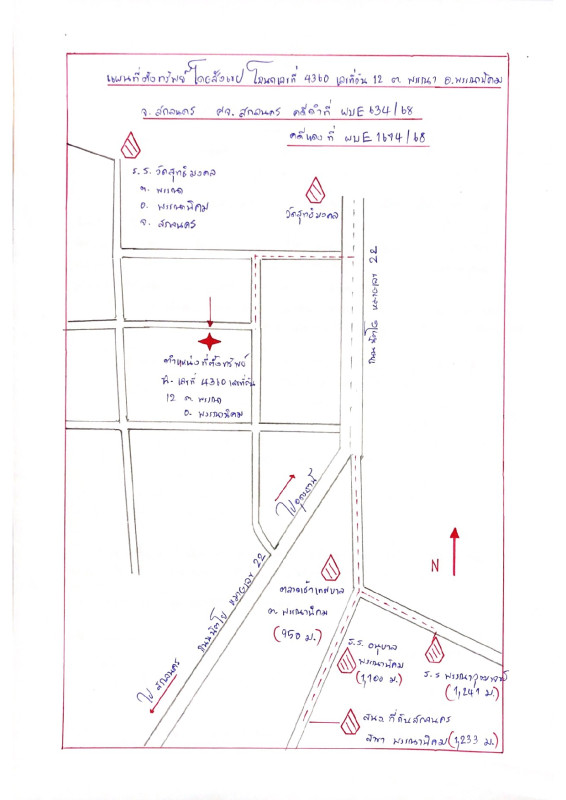 แผนที่ตั้งทรัพย์ โดยสังเขป โฉนดเลขที่ 4360 เลขที่ดิน 12 ต. พรรณา อ.พรรณานิคม
จ. สกลนคร ศจ. สกลนคร คดีดำที่ ผบE 634/68
คดีแดงที่ ผบE 1694/68
ร.ร. วัดสุทธิมงคล
ต. พรรณา
อ. พรรณานิคม
จ. สกลนคร
วัดสุทธิมงคล
ถนนนิตโย หมายเลข 22
ตำแหน่งที่ตั้งทรัพย์
เลขที่ 4360 เลขที่ดิน
12 ต. พรรณา
อ. พรรณานิคม
ไปอุดรธานี
ถนนนิตโย หมายเลข 22
ไป สกลนคร
N
ตลาดเช้าเทศบาล
ต. พรรณานิคม
(950 ม.)
ร.ร. อนุบาล
พรรณานิคม
(1,100 ม.)
ร.ร พรรณาวุฒาจารย์
(1,241 ม.)
สนง ที่ดินสกลนคร
สาขา พรรณานิคม (1,233 ม.)